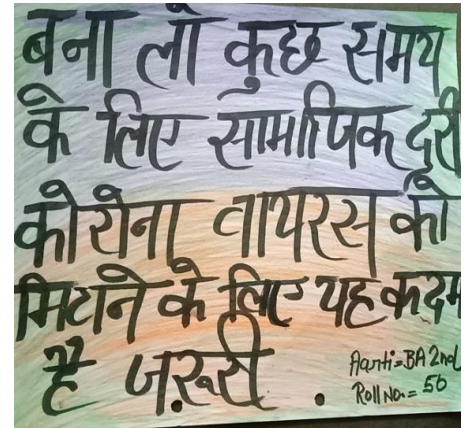 बना लो कुछ समय
के लिए सामाजिक दूरी
कोरोना वायरस को
मिटाने के लिए यह कदम
है जरूरी .
Aarti = BA 2nd
Roll No. = 56